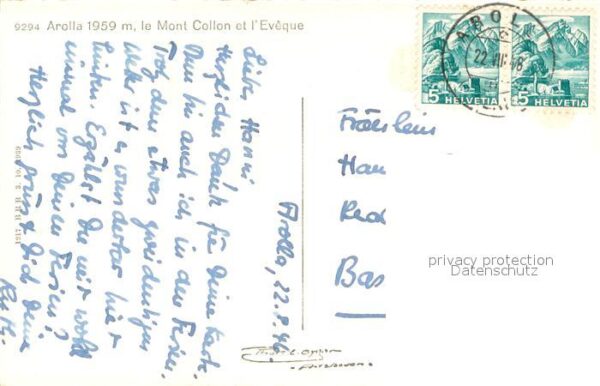 9294 Arolla 1959 m, le Mont Collon et l'Evêque
Arolla, 22.8.46.
Liebe Hanni
Herzlichen Dank für Deine Karte.
Nun bin auch ich in den Ferien.
Trotz dem etwas zweideutigen
Wetter ist es wunderbar hier
hinten. Erzählst Du mir wohl
einmal von Deinen Ferien?
Herzlich grüsst Dich Deine
Ruth.
AROL
22. VIII. 46
5 HELVETIA
5 HELVETIA
Fräulein
Han
Red
Bas
privacy protection
Datenschutz